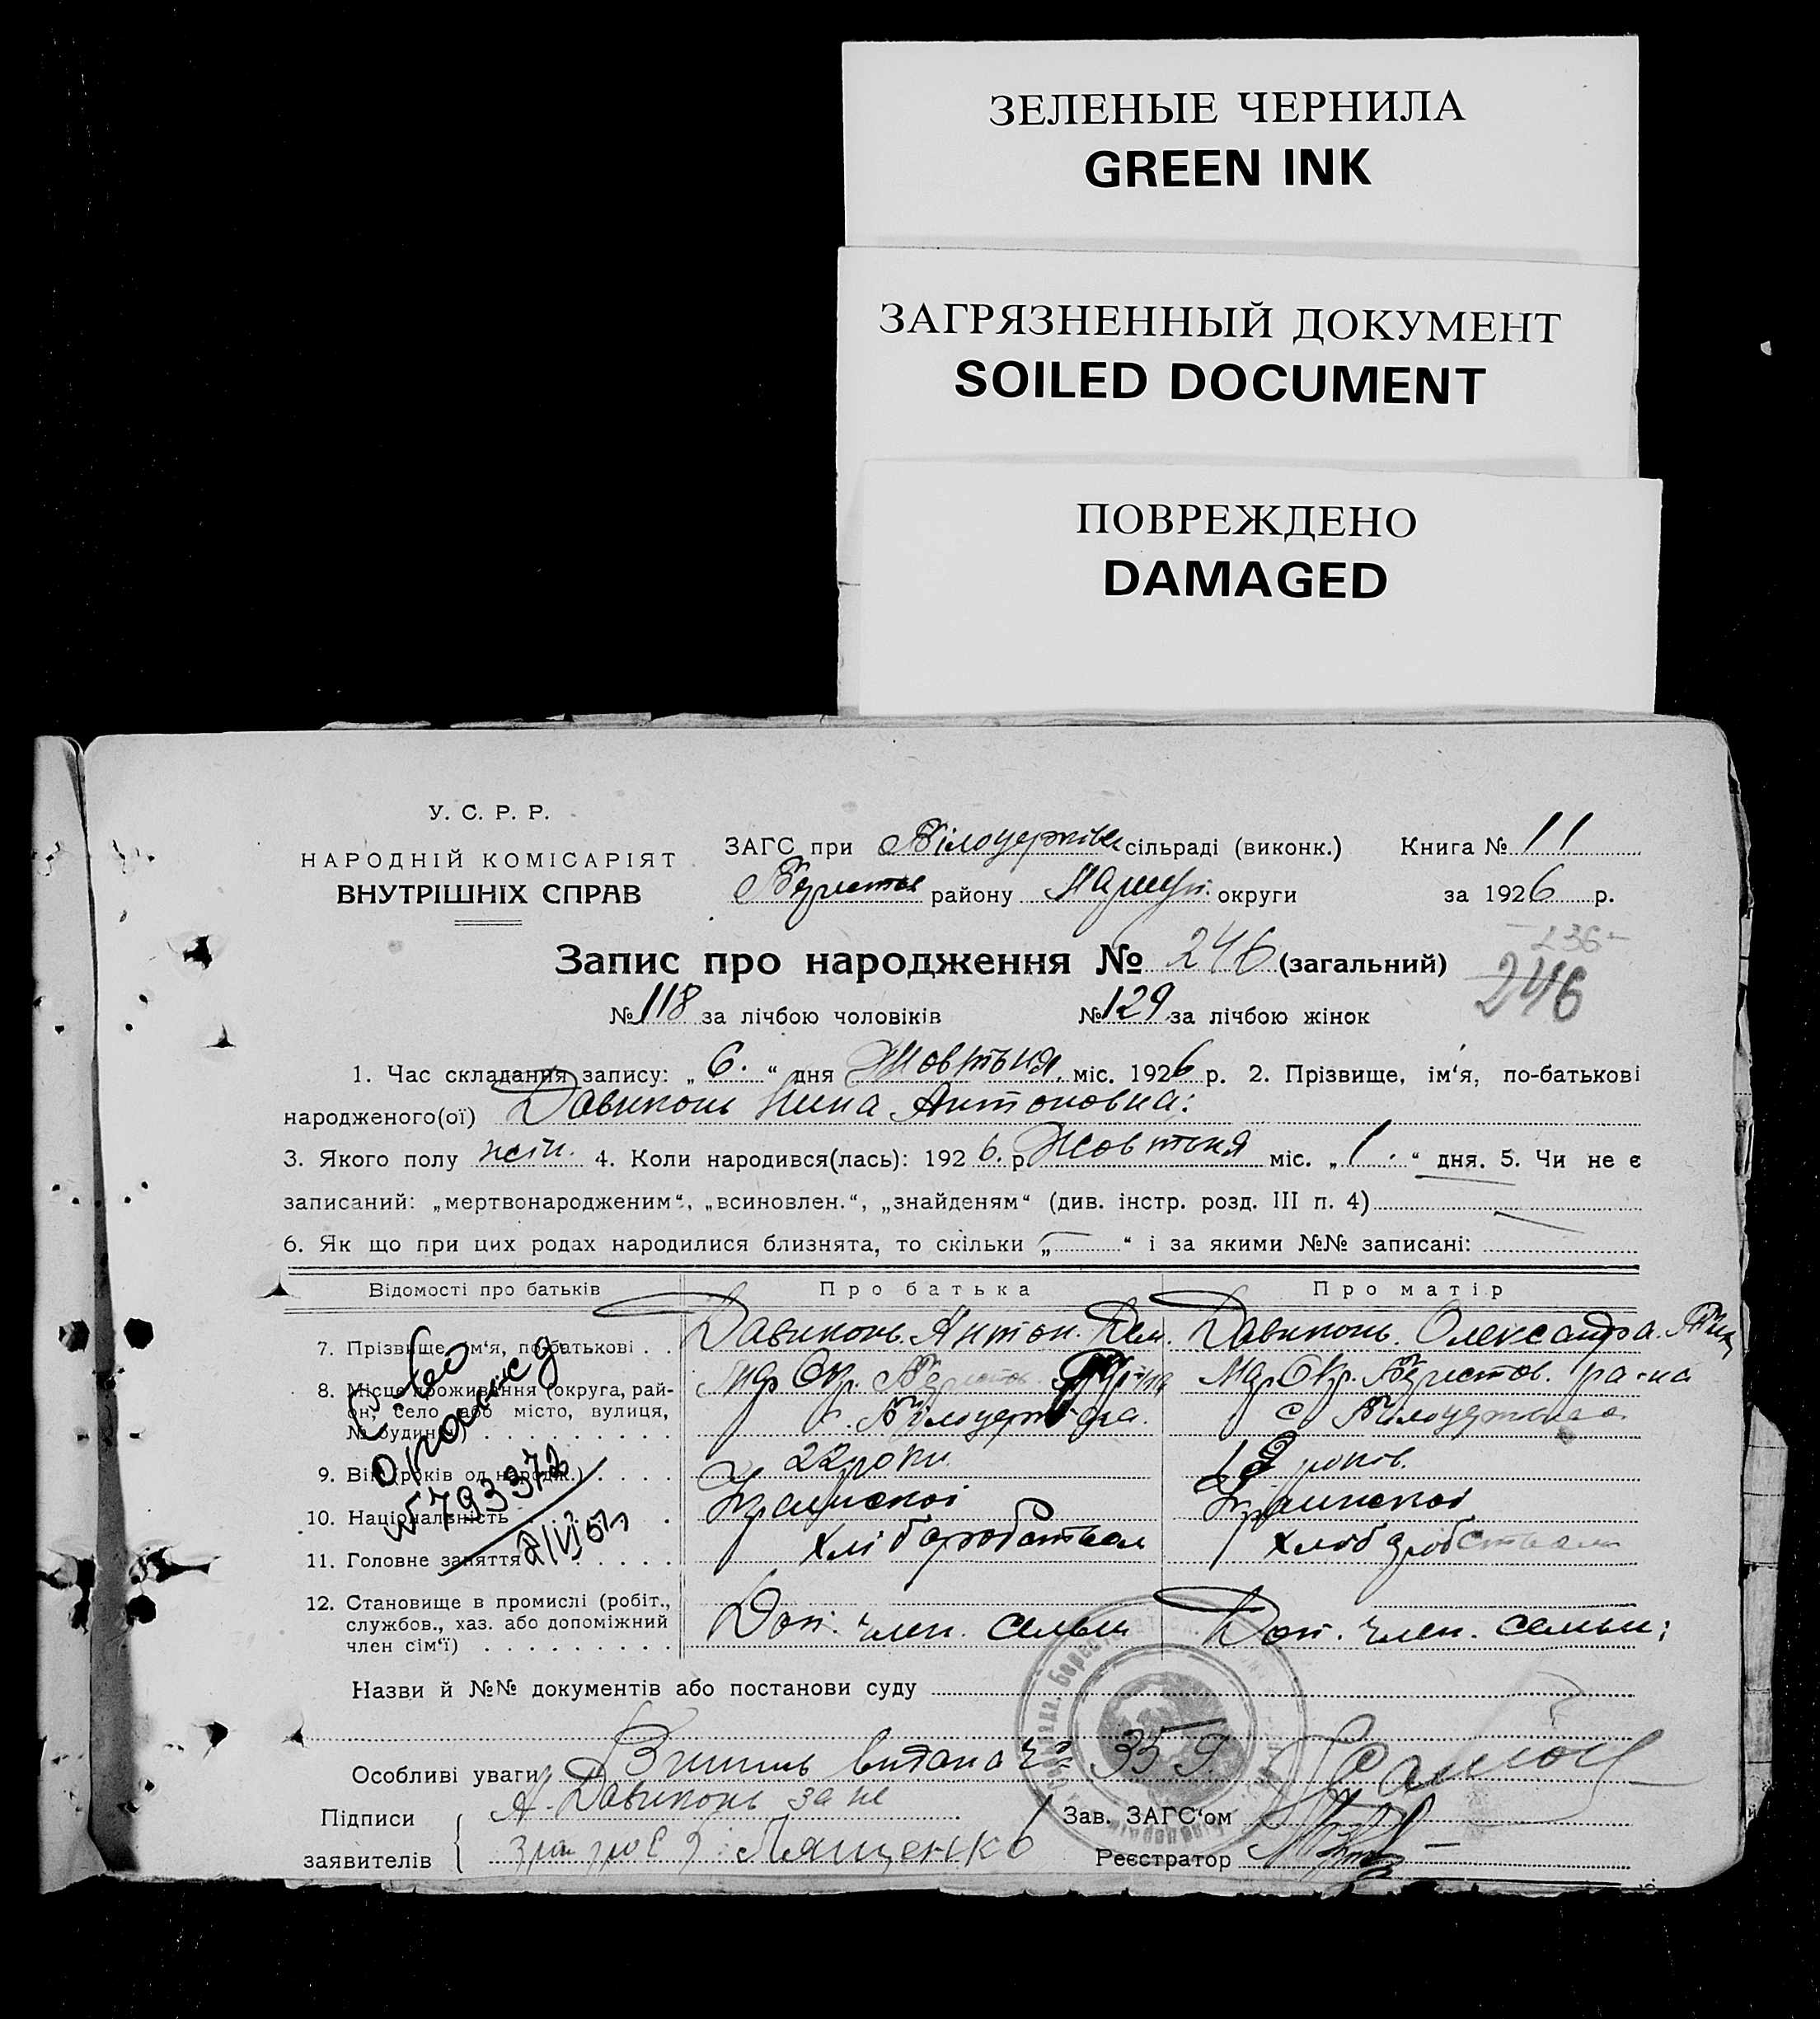 ЗЕЛЕНЫЕ ЧЕРНИЛА
GREEN INK
ЗАГРЯЗНЕННЫЙ ДОКУМЕНТ
SOILED DOCUMENT
ПОВРЕЖДЕНО
DAMAGED
У. С. Р. Р.
НАРОДНІЙ КОМІСАРІЯТ
ВНУТРІШНІХ СПРАВ
ЗАГС при Білоцерківск сільраді (виконк.) Книга № 11
Берестов району Маріюп. округи за 1926 р.
- 236 -
Запис про народження № 246 (загальний) 246
№ 118 за лічбою чоловіків № 129 за лічбою жінок
1. Час складання запису: „ 6. “ дня Жовтьня міс. 1926 р. 2. Прізвище, ім‘я, по-батькові
народженого(ої) Давиконь Нина Антоновна:
3. Якого полу жін. 4. Коли народився(лась): 192 6. р Жовтьня міс. „ 1. “ дня. 5. Чи не є
записаний: „мертвонародженим“, „всиновлен.“, „знайденям“ (див. інстр. розд. III п. 4)
6. Як що при цих родах народилися близнята, то скільки „ — “ і за якими №№ записані:
Відомості про батьків Про батька Про матір
7. Прізвище, ім‘я, по-батькові . . Давиконь. Антон. Дем. Давиконь. Олександра.
8. Місце проживання (округа, рай- Мар Окр. Берестов. Мар Окр. Берестов. ра-на
он, село або місто, вулиця, с. Білоцерковка. с Білоцерковка
№ будинк.)
9. Вік (років од народж.) 22 роки 19 років.
10. Національність Украинскої Украинскої
11. Головне заняття Хліборобством Хліборобством
12. Становище в промислі (робіт., Доп. член. семьи Доп. член. семьи;
службов., хаз. або допоміжний
член сім‘ї)
С-во
№ 793372
2/VI 51
Назви й №№ документів або постанови суду
Особливі уваги Випись видана за 359.
Підписи А. Давиконь за не Зав. ЗАГС‘ом
заявителів Лященко Реєстратор